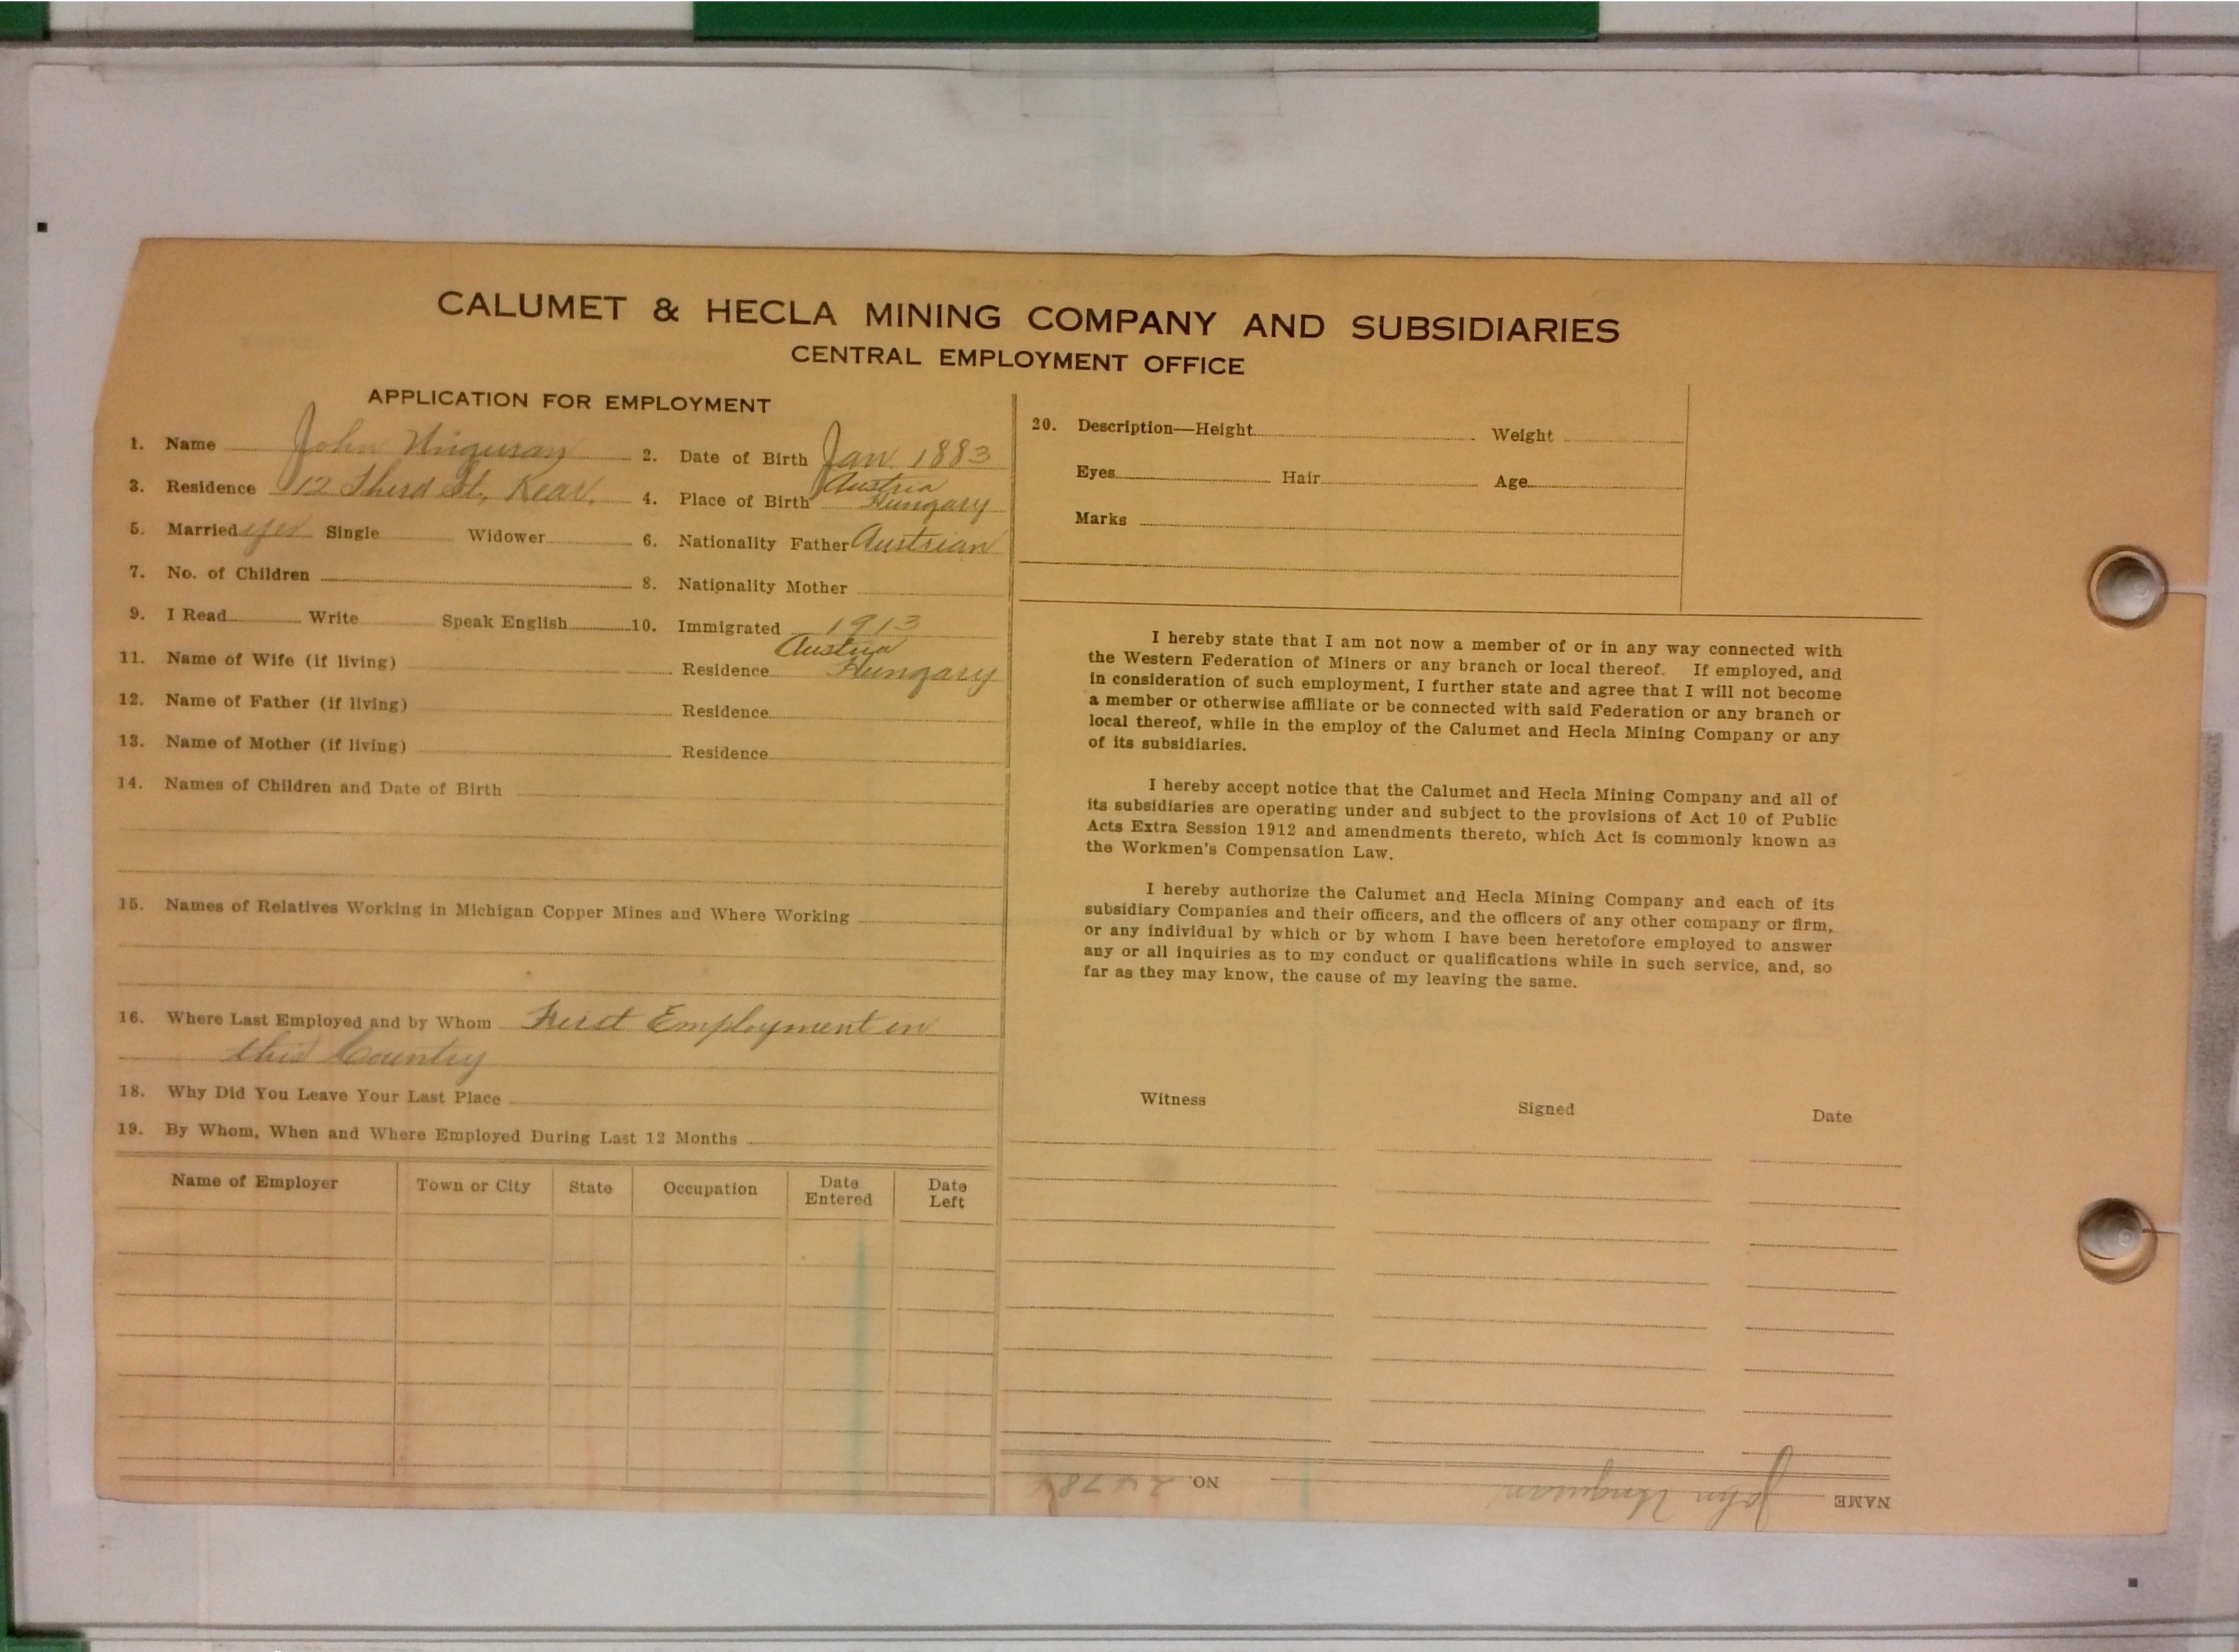 CALUMET & HECLA MINING COMPANY AND SUBSIDIARIES
CENTRAL EMPLOYMENT OFFICE
APPLICATION FOR EMPLOYMENT
1. Name John 2. Date of Birth Jan 1883
3. Residence 12 Third St, Kear. 4. Place of Birth Austria Hungary
5. Married yes Single Widower 6. Nationality Father Austrian
7. No. of Children 8. Nationality Mother
9. I Read Write Speak English 10. Immigrated 1913
11. Name of Wife (if living) Residence Austria Hungary
12. Name of Father (if living) Residence
13. Name of Mother (if living) Residence
14. Names of Children and Date of Birth
15. Names of Relatives Working in Michigan Copper Mines and Where Working
16. Where Last Employed and by Whom First Employment in
this Country
18. Why Did You Leave Your Last Place
19. By Whom, When and Where Employed During Last 12 Months
Name of Employer Town or City State Occupation Date Entered Date Left
20. Description—Height Weight
Eyes Hair Age
Marks
I hereby state that I am not now a member of or in any way connected with
the Western Federation of Miners or any branch or local thereof. If employed, and
in consideration of such employment, I further state and agree that I will not become
a member or otherwise affiliate or be connected with said Federation or any branch or
local thereof, while in the employ of the Calumet and Hecla Mining Company or any
of its subsidiaries.
I hereby accept notice that the Calumet and Hecla Mining Company and all of
its subsidiaries are operating under and subject to the provisions of Act 10 of Public
Acts Extra Session 1912 and amendments thereto, which Act is commonly known as
the Workmen's Compensation Law.
I hereby authorize the Calumet and Hecla Mining Company and each of its
subsidiary Companies and their officers, and the officers of any other company or firm,
or any individual by which or by whom I have been heretofore employed to answer
any or all inquiries as to my conduct or qualifications while in such service, and, so
far as they may know, the cause of my leaving the same.
Witness Signed Date
NAME John NO.